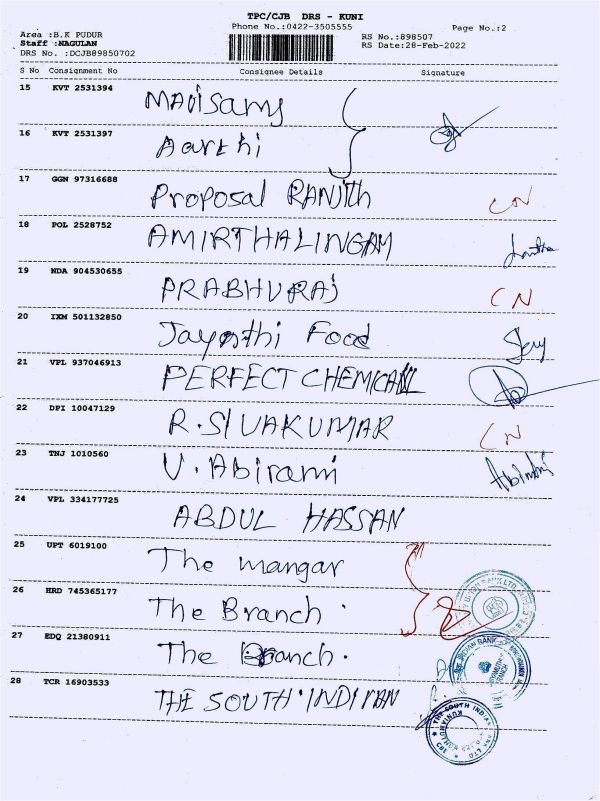 TPC/CJB DRS - KUNI
Phone No.:0422-3505555
Page No.:2
Area :B.K PUDUR
RS No.:898507
Staff :NAGULAN
RS Date:28-Feb-2022
DRS No. :DCJB89850702
S No Consignment No Consignee Details Signature
15 KVT 2531394 Madisamy
16 KVT 2531397 Aarthi
17 GGN 97316688 Proposal RANJith CN
18 POL 2528752 AMIRTHALINGAM
19 NDA 904530655 PRABHURAJ CN
20 IXM 501132850 Jayanthi Food
21 VPL 937046913 PERFECT CHEMICAL
22 DPI 10047129 R.SIVAKUMAR CN
23 TNJ 1010560 V.Abirami
24 VPL 334177725 ABDUL HASSAN
25 UPT 6019100 The mangar
26 HRD 745365177 The Branch.
27 EDQ 21380911 The Branch.
28 TCR 16903533 THE SOUTH INDIYAN